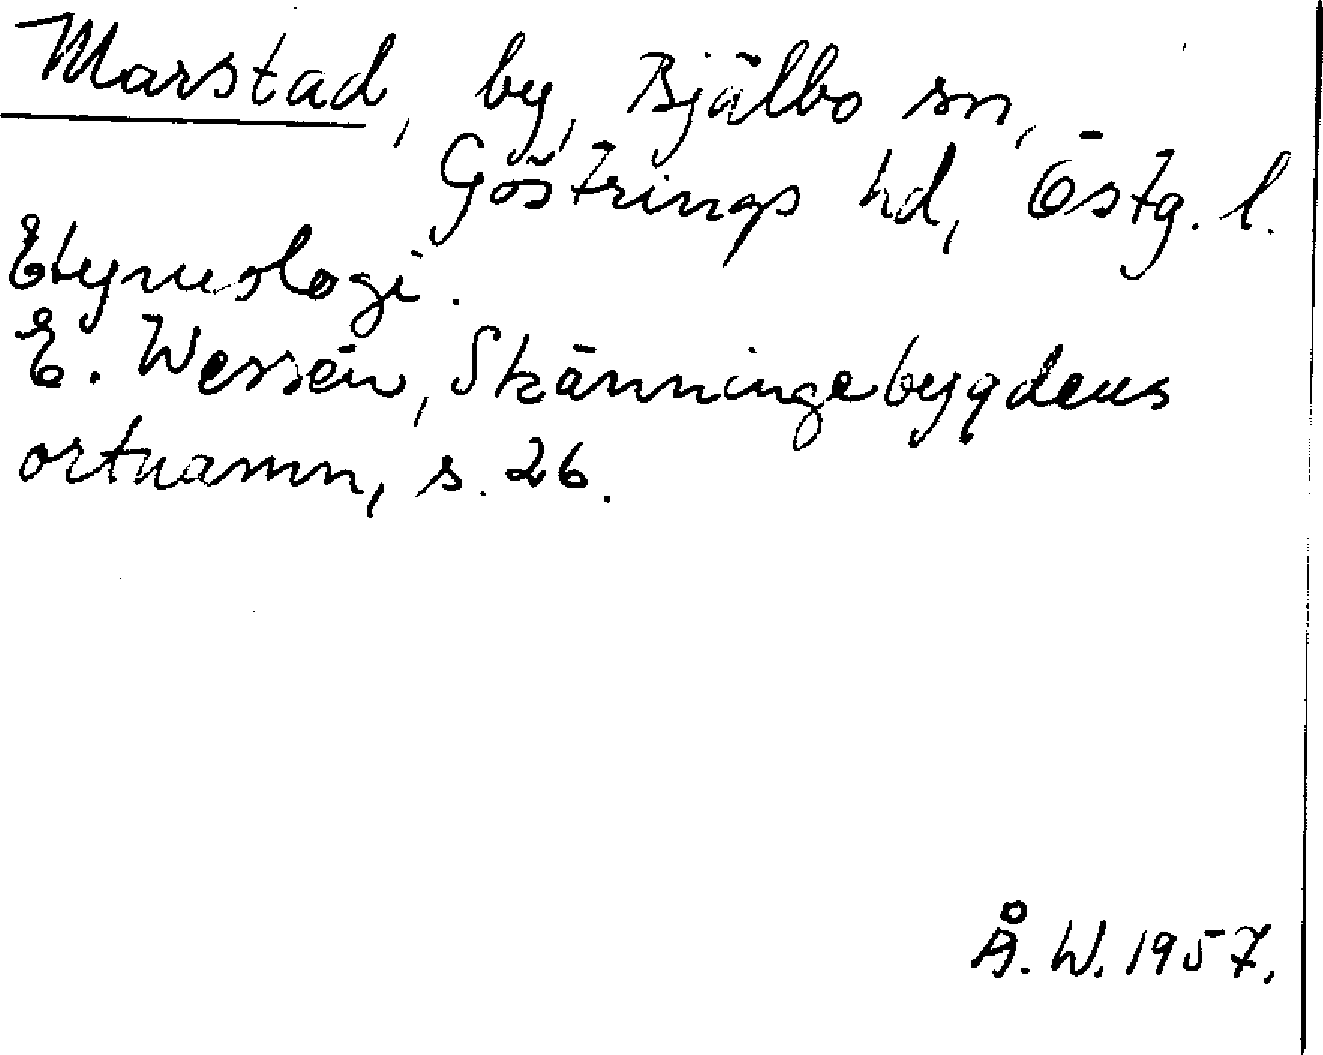 Marstad, by, Bjälbo sn,
Göstrings hd, Östg. l.
Etymologi.
E. Wessén, Skänningebygdens
ortnamn, s. 26.
Å. W. 1957.